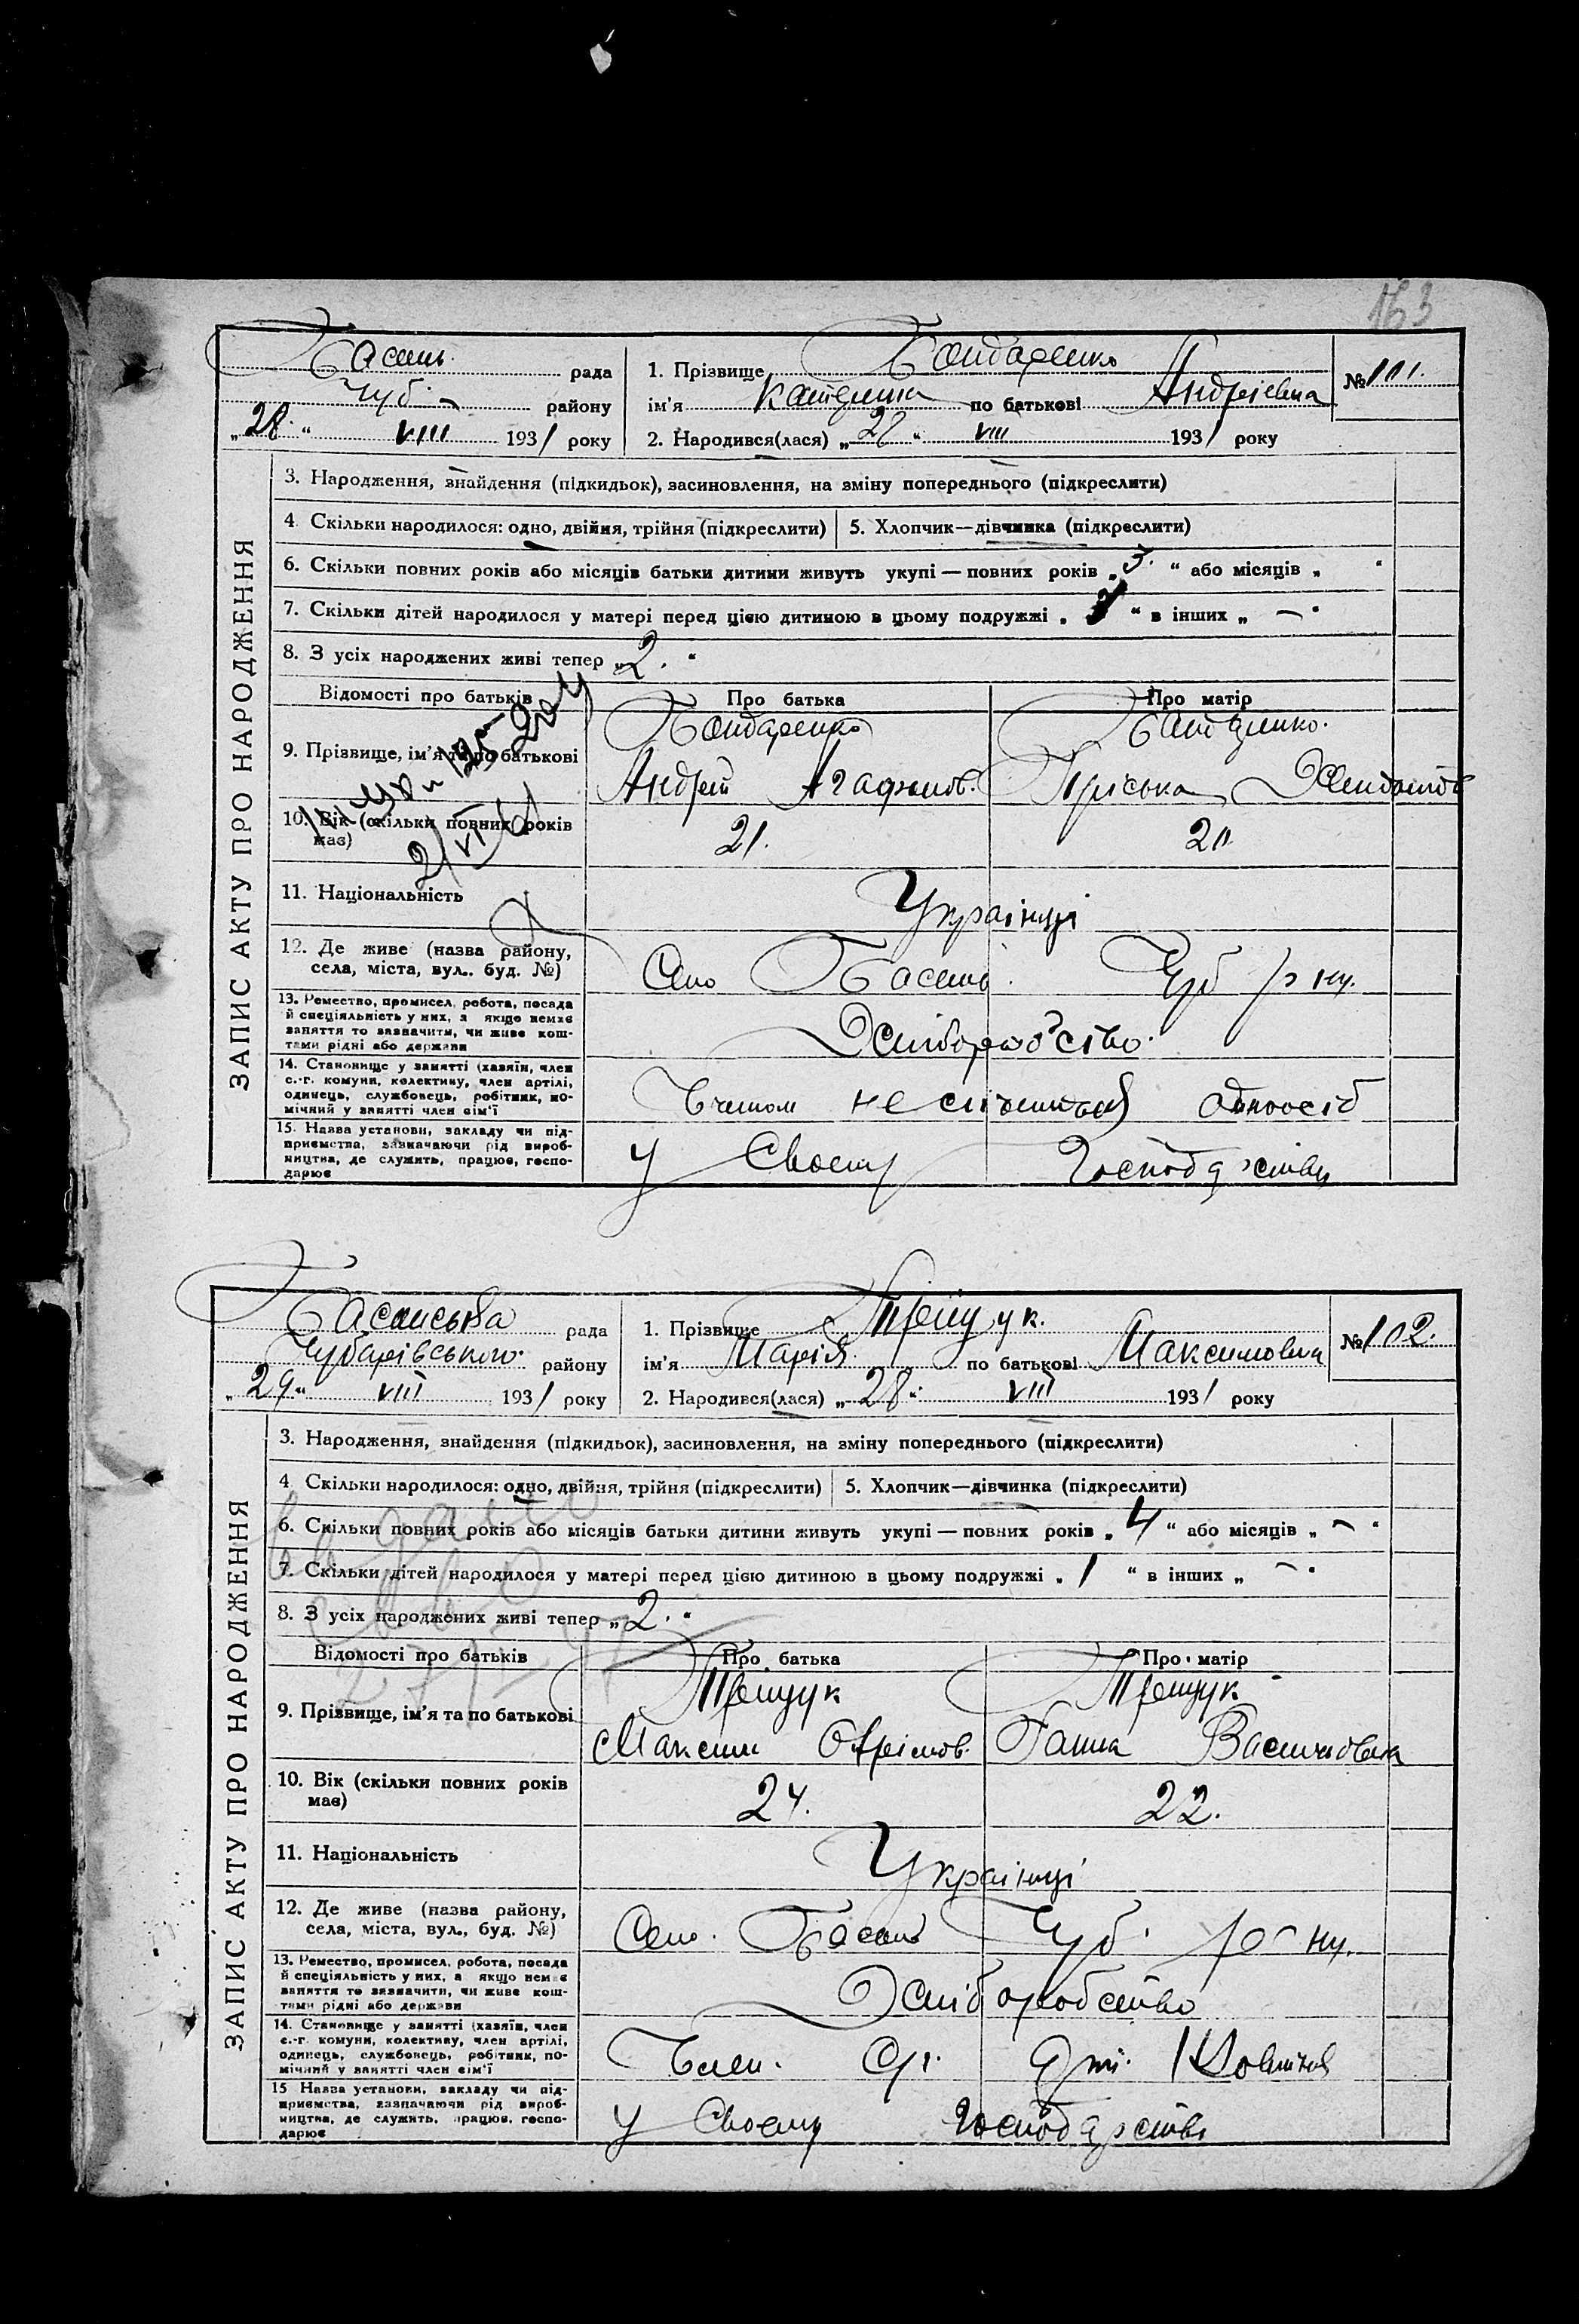 163
Басань рада
Чуб. району
„28“ VIII 1931 року
1. Прізвище Бондаренко
ім'я Катерина по батькові Андріївна
2. Народився(лася) „28“ VIII 1931 року
№ 101.
ЗАПИС АКТУ ПРО НАРОДЖЕННЯ
3. Народження, знайдення (підкидьок), засиновлення, на зміну попереднього (підкреслити)
4. Скільки народилося: одно, двійня, трійня (підкреслити)
5. Хлопчик—дівчинка (підкреслити)
6. Скільки повних років або місяців батьки дитини живуть укупі — повних років „3.“ або місяців „ “
7. Скільки дітей народилося у матері перед цією дитиною в цьому подружжі „ “ в інших „ — “
8. З усіх народжених живі тепер „2.“
Відомості про батьків
Про батька
Про матір
9. Прізвище, ім'я та по батькові
Бондаренко
Андрій Агафонов.
Бондаренко.
Пріська
10. Вік (скільки повних років має)
21.
20
11. Національність
Українці
12. Де живе (назва району, села, міста, вул., буд. №)
Село Басань. Чуб р-ну.
13. Ремество, промисел, робота, посада
й спеціяльність у них, а якщо немає
заняття то зазначити, чи живе кош-
тами рідні або держави
14. Становище у занятті (хазяїн, член
с.-г. комуни, колективу, член артілі,
одинець, службовець, робітник, по-
мічний у занятті член сім'ї
одноосіб
15. Назва установи, закладу чи під-
приємства, зазначаючи рід вироб-
ництва, де служить, працює, госпо-
дарює
У Своєму Господарстві
Басанська рада
Чубарівського району
„29“ VIII 1931 року
1. Прізвище Трещук.
ім'я Марія по батькові Максимовна
2. Народився(лася) „28“ VIII 1931 року
№ 102.
ЗАПИС АКТУ ПРО НАРОДЖЕННЯ
3. Народження, знайдення (підкидьок), засиновлення, на зміну попереднього (підкреслити)
4 Скільки народилося: одно, двійня, трійня (підкреслити)
5. Хлопчик—дівчинка (підкреслити)
6. Скільки повних років або місяців батьки дитини живуть укупі — повних років „4“ або місяців „ — “
7. Скільки дітей народилося у матері перед цією дитиною в цьому подружжі „1“ в інших „ — “
8. З усіх народжених живі тепер „2.“
Відомості про батьків
Про батька
Про матір
9. Прізвище, ім'я та по батькові
Трещук
Максим
Трещук
Ганна Васильовна
10. Вік (скільки повних років має)
24.
22.
11. Національність
Українці
12. Де живе (назва району, села, міста, вул., буд. №)
Село. Басань Чуб. р-ну.
13. Ремество, промисел, робота, посада
й спеціяльність у них, а якщо немає
заняття то зазначити, чи живе кош-
тами рідні або держави
14. Становище у занятті (хазяїн, член
с.-г. комуни, колективу, член артілі,
одинець, службовець, робітник, по-
мічний у занятті член сім'ї
Член.
15 Назва установи, закладу чи під-
приємства, зазначаючи рід вироб-
ництва, де служить, працює, госпо-
дарює
У Своєму Господарстві